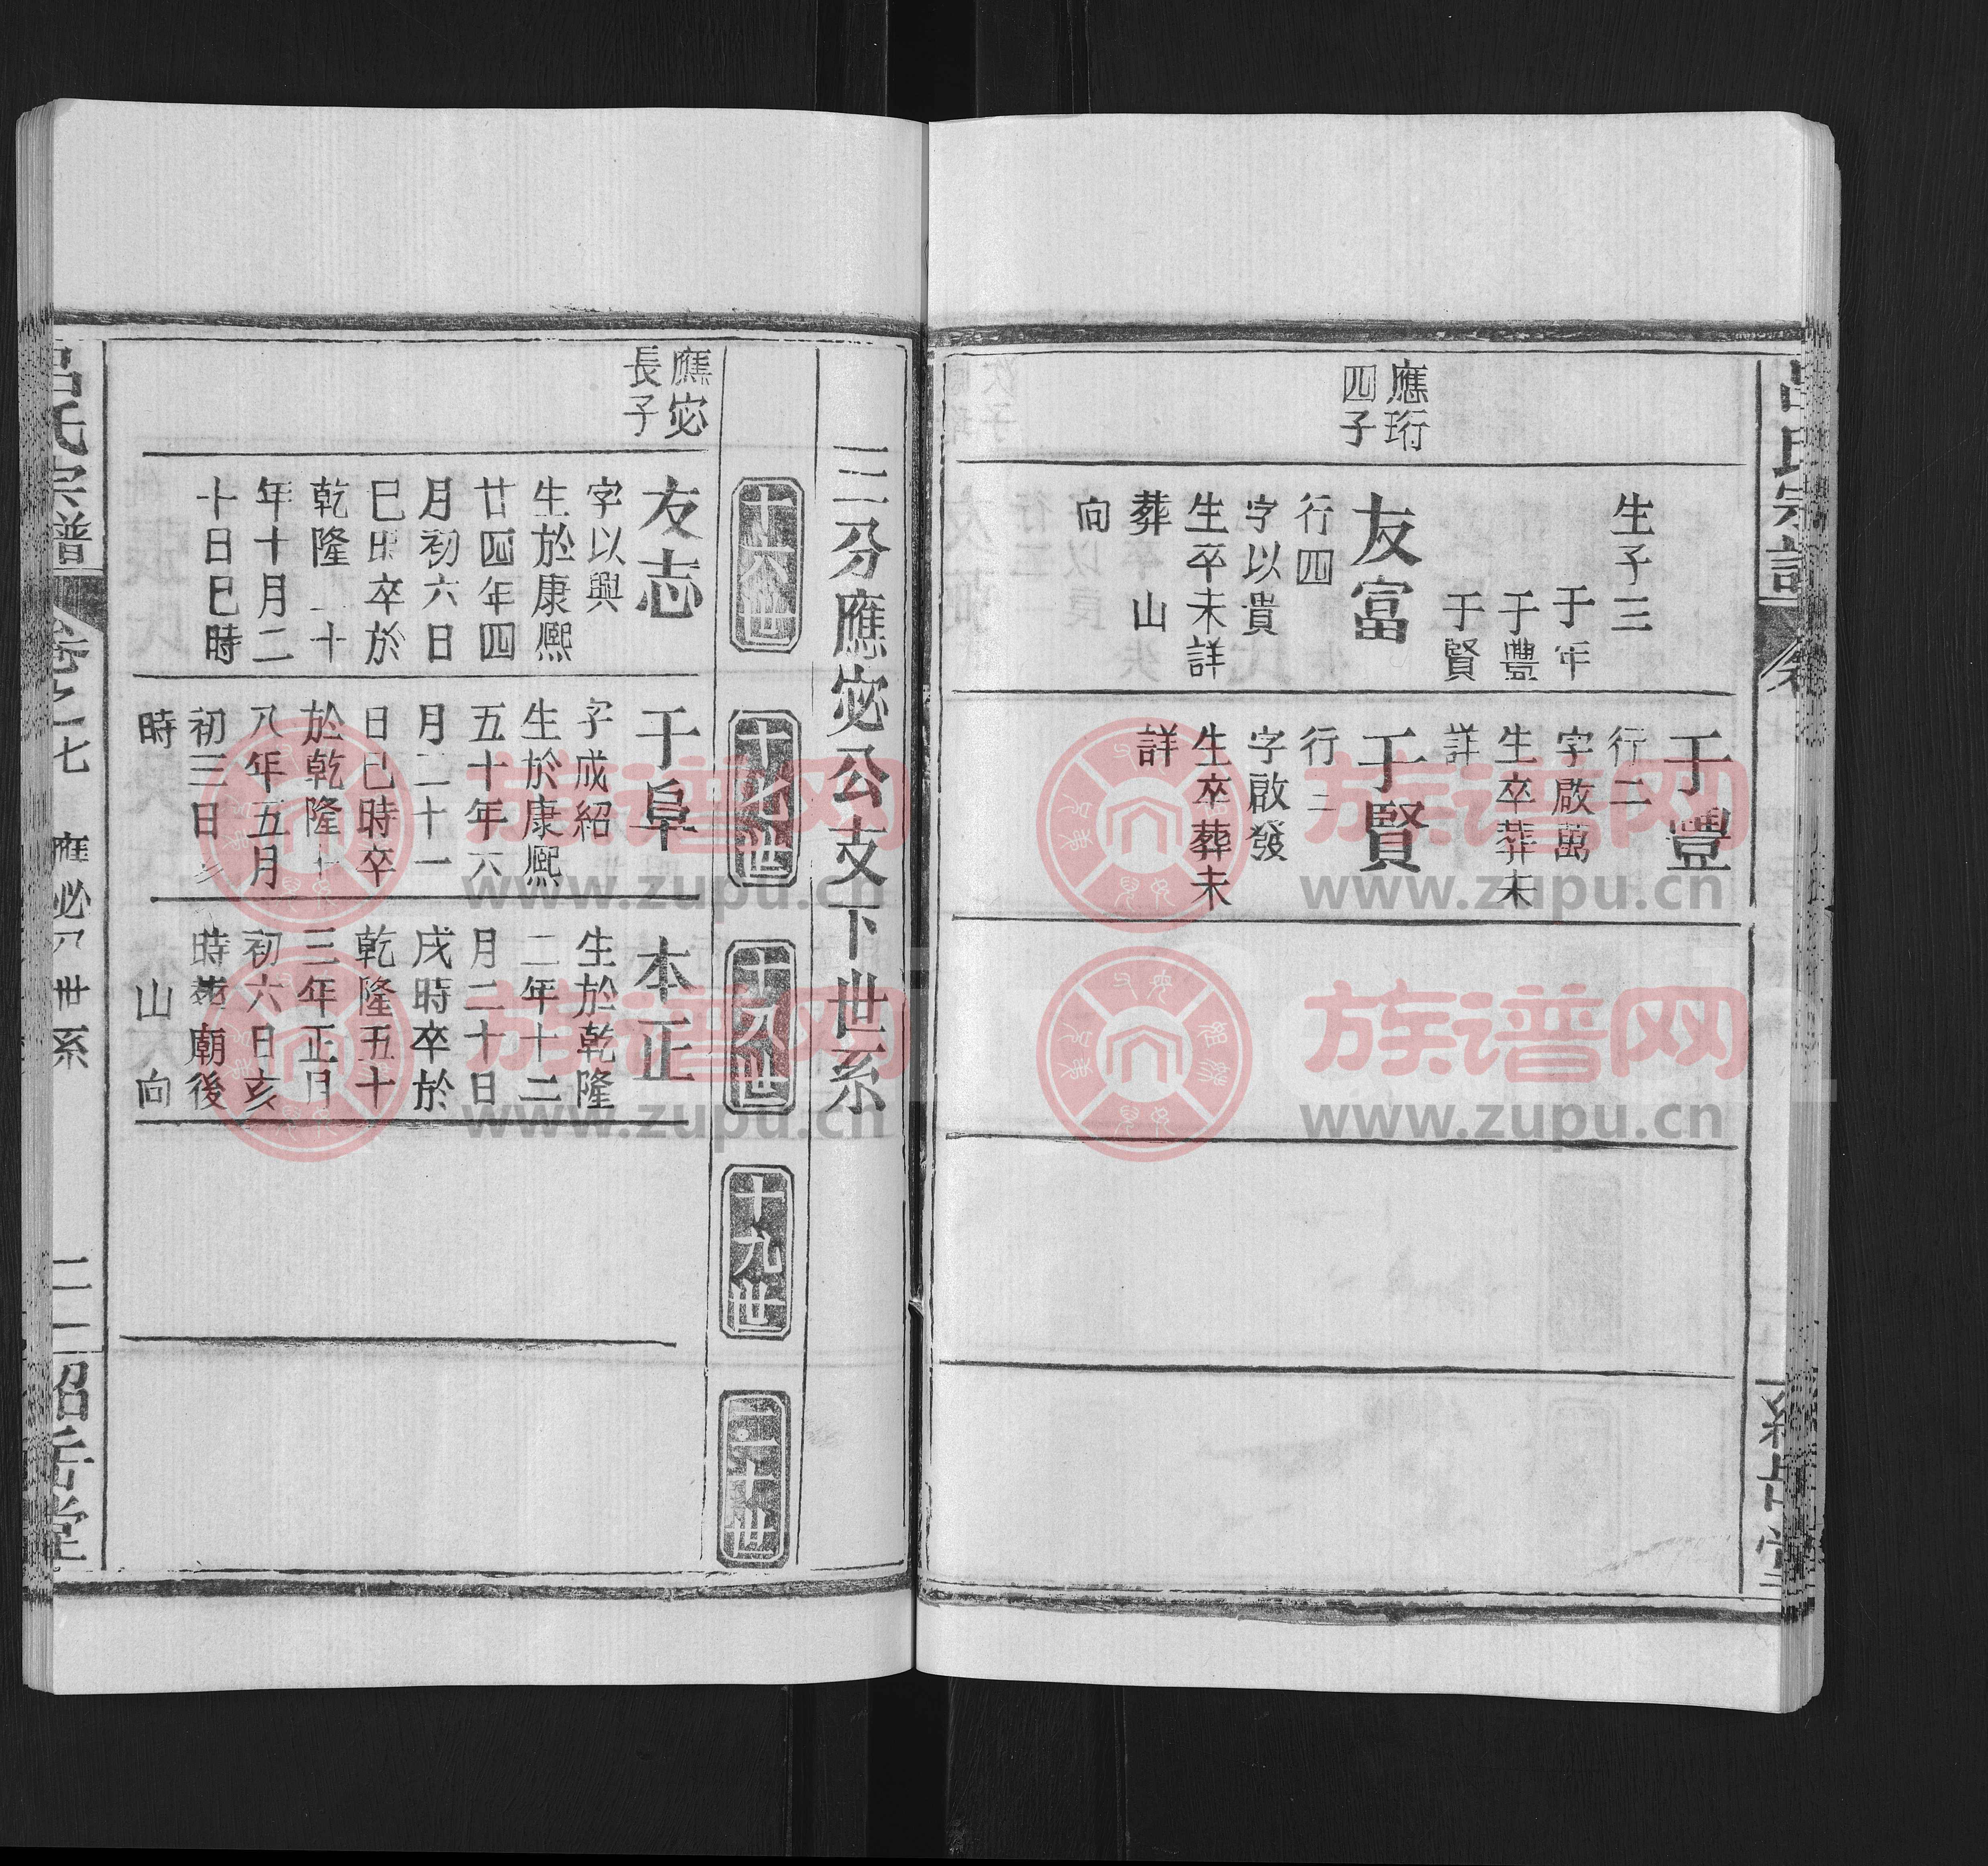 呂氏宗譜
應珩
四子
生子三
于年
于豐
于賢
友富
行四
字以貴
生卒未詳
葬 山
向
于豐
行二
字啟萬
生卒葬未
詳
于賢
行三
字啟發
生卒葬未
詳
三分應宓公支下世系
十六世
十七世
十八世
十九世
二十世
應宓
長子
友志
字以興
生於康熙
廿四年四
月初六日
巳時卒於
乾隆二十
年十月二
十日巳時
于阜
字成紹
生於康熙
五十年六
月二十一
日巳時卒
於乾隆十
八年五月
初三日
時
本正
生於乾隆
二年十二
月二十日
戌時卒於
乾隆五十
三年正月
初六日亥
時葬廟後
山 向
呂氏宗譜
卷之七
應必公世系
二二
昭岳堂
族谱网
www.zupu.cn
族谱网
www.zupu.cn
族谱网
www.zupu.cn
族谱网
www.zupu.cn